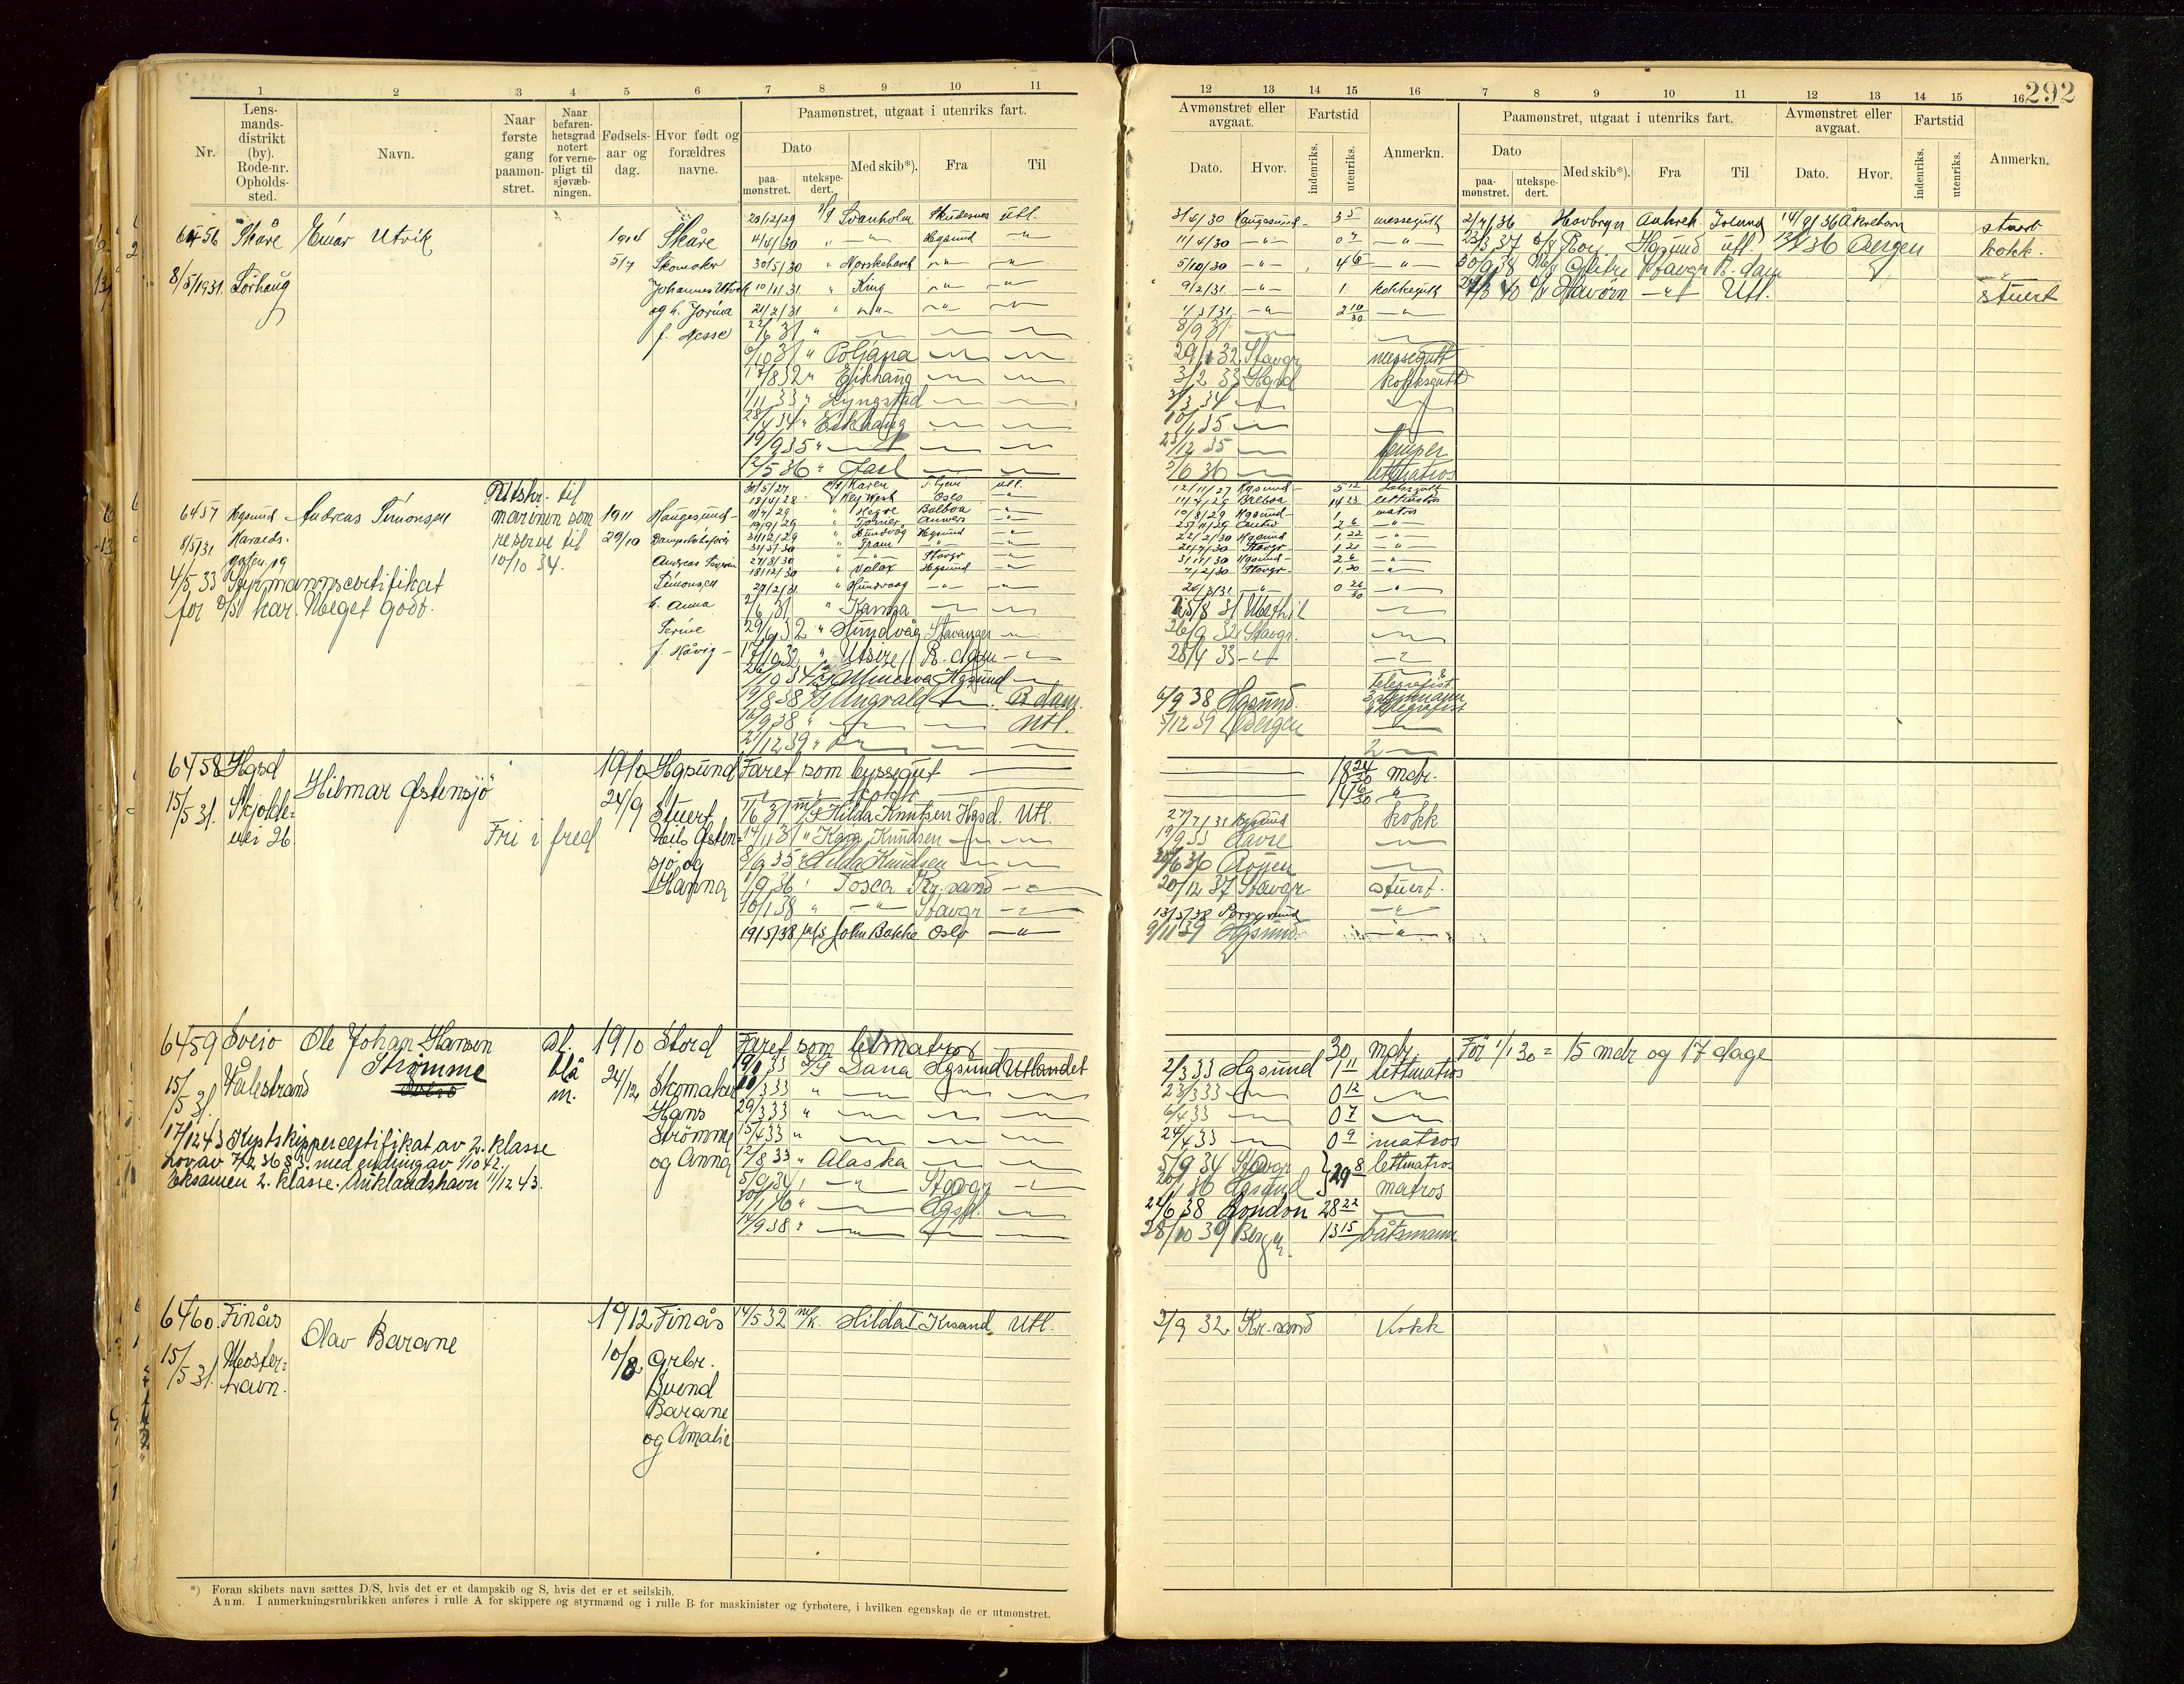 292
1 2 3 4 5 6 7 8 9 10 11
Nr.
Lens-
mands-
distrikt
(by).
Rode-nr.
Opholds-
sted.
Navn.
Naar
første
gang
paamøn-
stret.
Naar
befaren-
hetsgrad
notert
for verne-
pligt til
sjøvæb-
ningen.
Fødsels-
aar og
dag.
Hvor født og
forældres
navne.
Paamønstret, utgaat i utenriks fart.
Dato
paa-
mønstret.
utekspe-
dert.
Med skib*).
Fra
Til
12 13 14 15 16 7 8 9 10 11 12 13 14 15 16
Avmønstret eller
avgaat.
Dato.
Hvor.
Fartstid
indenriks.
utenriks.
Anmerkn.
Paamønstret, utgaat i utenriks fart.
Dato
paa-
mønstret.
utekspe-
dert.
Med skib*).
Fra
Til
Avmønstret eller
avgaat.
Dato.
Hvor.
Fartstid
indenriks.
utenriks.
Anmerkn.
6456 Skåre Einar Utvik 1914 Skåre
8/5 1931. Sørhaug 5/7 Skomaker
Johannes Utvik
og h. Jorina
f. Nesse
20/12/29 Svanholm Skudesnes utl. 31/4/30 Haugesund messegutt
4/4/30 " — " — Hgsund — " — 11/4/30 — " — — " —
30/5/30 " Norskehavet — " — — " — 5/10/30 — " — 4 6 — " —
10/11/31 " King — " — — " — 9/2/31 — " — 1 kokkegutt
21/2/31 " — " — — " — — " — — " — 2 10/30 — " —
22/6 31 " — — — 8/9 31 —
6/10 31 " Poljana — — 29/1 32 Stavgr messegutt
17/8 32 " Eikhaug — — 3/2 33 Hgsd kokksgutt
1/11 33 " Lyngstad — — 3/3 34 —
28/4 34 " Eikhaug — — 10/1 35 —
19/9 35 " — — — 23/12 35 — lemper
12/5 36 " Jarl — — 5/6 36 — lettmatros
2/4/36 Havbryn Aakreh Island 14/9/36 Åkrehavn stuert
23/3 37 Hgsund utl. Bergen kokk.
Stavgr R.dam
Havörn — " — Utl. stuert
6457 Hgsund Andreas Simonsen Utskr. til 1911 Haugesund
8/5/31 Haralds- marinen som 29/10 Dampskibsfører
gaten 19 reserve til Andreas Severin
10/10 34. Simonsen
4/5 33 Styrmannscertifikat h. Anna
for har. Meget godt. Serine
f. Håvig
30/5/27 Karen utl. 12/11/27 Hgsund 5 12
18/4/28 Key West Oslo — " — Balboa 14 23 lettmatros
11/4/29 " Hegre Balboa — " — 10/8/29 Hgsund 1 matros
19/9/29 " Anwers — " — 25/11/29 2 6 — " —
31/12/29 " Hundvåg Hgsund — " — 22/2/30 Hgsund 1. 22 — " —
31/5/30 " Fram — " — — " — Stavgr 1. 21 — " —
27/8/30 " — " — Stavgr — " — 31/11/30 Hgsund 2 6 — " —
18/12/30 " Hgsund — " — 7/2/30 Stavgr 1. 20 — " —
27/2/31 " Hundvaag — " — — " — 26/3/31 — " — 0 26/30 — " —
2/6 31 " Karma — — 25/8 31 Methil —
29/6 32 " Hundvåg Stavanger — 26/9 32 Stavgr. —
17/10 32 " Utsire R.dam — 28/4 33 —
Minerva Hgsund — Telegrafist
19/8 38 Ungvald — R.dam. 6/9 38 Hgsund 3 styrmann
16/9 38 " — — Utl. 5/12 39 Bergen —
27/12 39 " — — —
6458 Hgsd Hilmar Østensjö 1910 Hgsund Faret som byssegut — 18 24/30 mdr.
15/5 31. Skjolde- 24/9 Stuert " kokk — 14 6/30 "
vei 26 Fri i fred Nils Østen-
sjø og
Hanna
1/6 31 M/S Hilda Knutsen Hgsd. Utl. 27/7/31 Hgsund kokk
14/11 31 " Kaia Knudsen — — 19/9 33 Havre —
8/9 35 " Hilda Knudsen — — 25/6 36 Rouen —
1/9 36 " Tosca Kr.sand — 20/12 37 Stavgr. stuert.
10/1 38 " — " — Stavgr — 13/5/38 Porsgrund — " —
19/5/38 M/S John Bakke Oslo — " — 9/11 39 Hgsund — " —
6459 Sveio Ole Johan Hansen al. 1910 Stord
Strømme
Sveio
15/5 31. Valestrand blå 24/12 Skomaker
m. Hans
Strömme
og Anna
17/12 43 Kystskippercertifikat av 2. klasse
Lov av 7/2 36 § 3. med endring av 1/10 42.
Eksamen 2. klasse. Auklandshavn 11/12 43.
Faret som letmatros — 30 mdr. För 1/1 30 = 15 mdr og 17 dage
19/1 33 D/S Dana Hgsund Utlandet 2/3 33 Hgsund 1 11 lettmatros
10/3 33 " — — — 23/3 33 — 0 12 —
29/3 33 " — — — 6/4 33 — 0 7 —
15/4 33 " — — — 24/4 33 — 0 9 matros
12/8 33 " Alaska — — 5/9 34 Stavgr 29 8 lettmatros
5/9 34 " — " — Stavgr — 20/1 36 Hgsund matros
30/1 36 " — Hgsd. — 22/6 38 London 28 22 —
14/9 38 " — — — 28/10 39 Bergen 13 15 båtsmann
6460 Finås Olav Barane 1912 Finås 14/5 32 M/K. Hilda I Krsand Utl. 3/9 32 Kr.sand Kokk
15/5 31. Moster- 10/8 Grbr.
havn. Svend
Barane
og Amalie
*) Foran skibets navn sættes D/S, hvis det er et dampskib og S, hvis det er et seilskib.
Anm. I anmerkningsrubrikken anføres i rulle A for skippere og styrmænd og i rulle B for maskinister og fyrbøtere, i hvilken egenskap de er utmønstret.